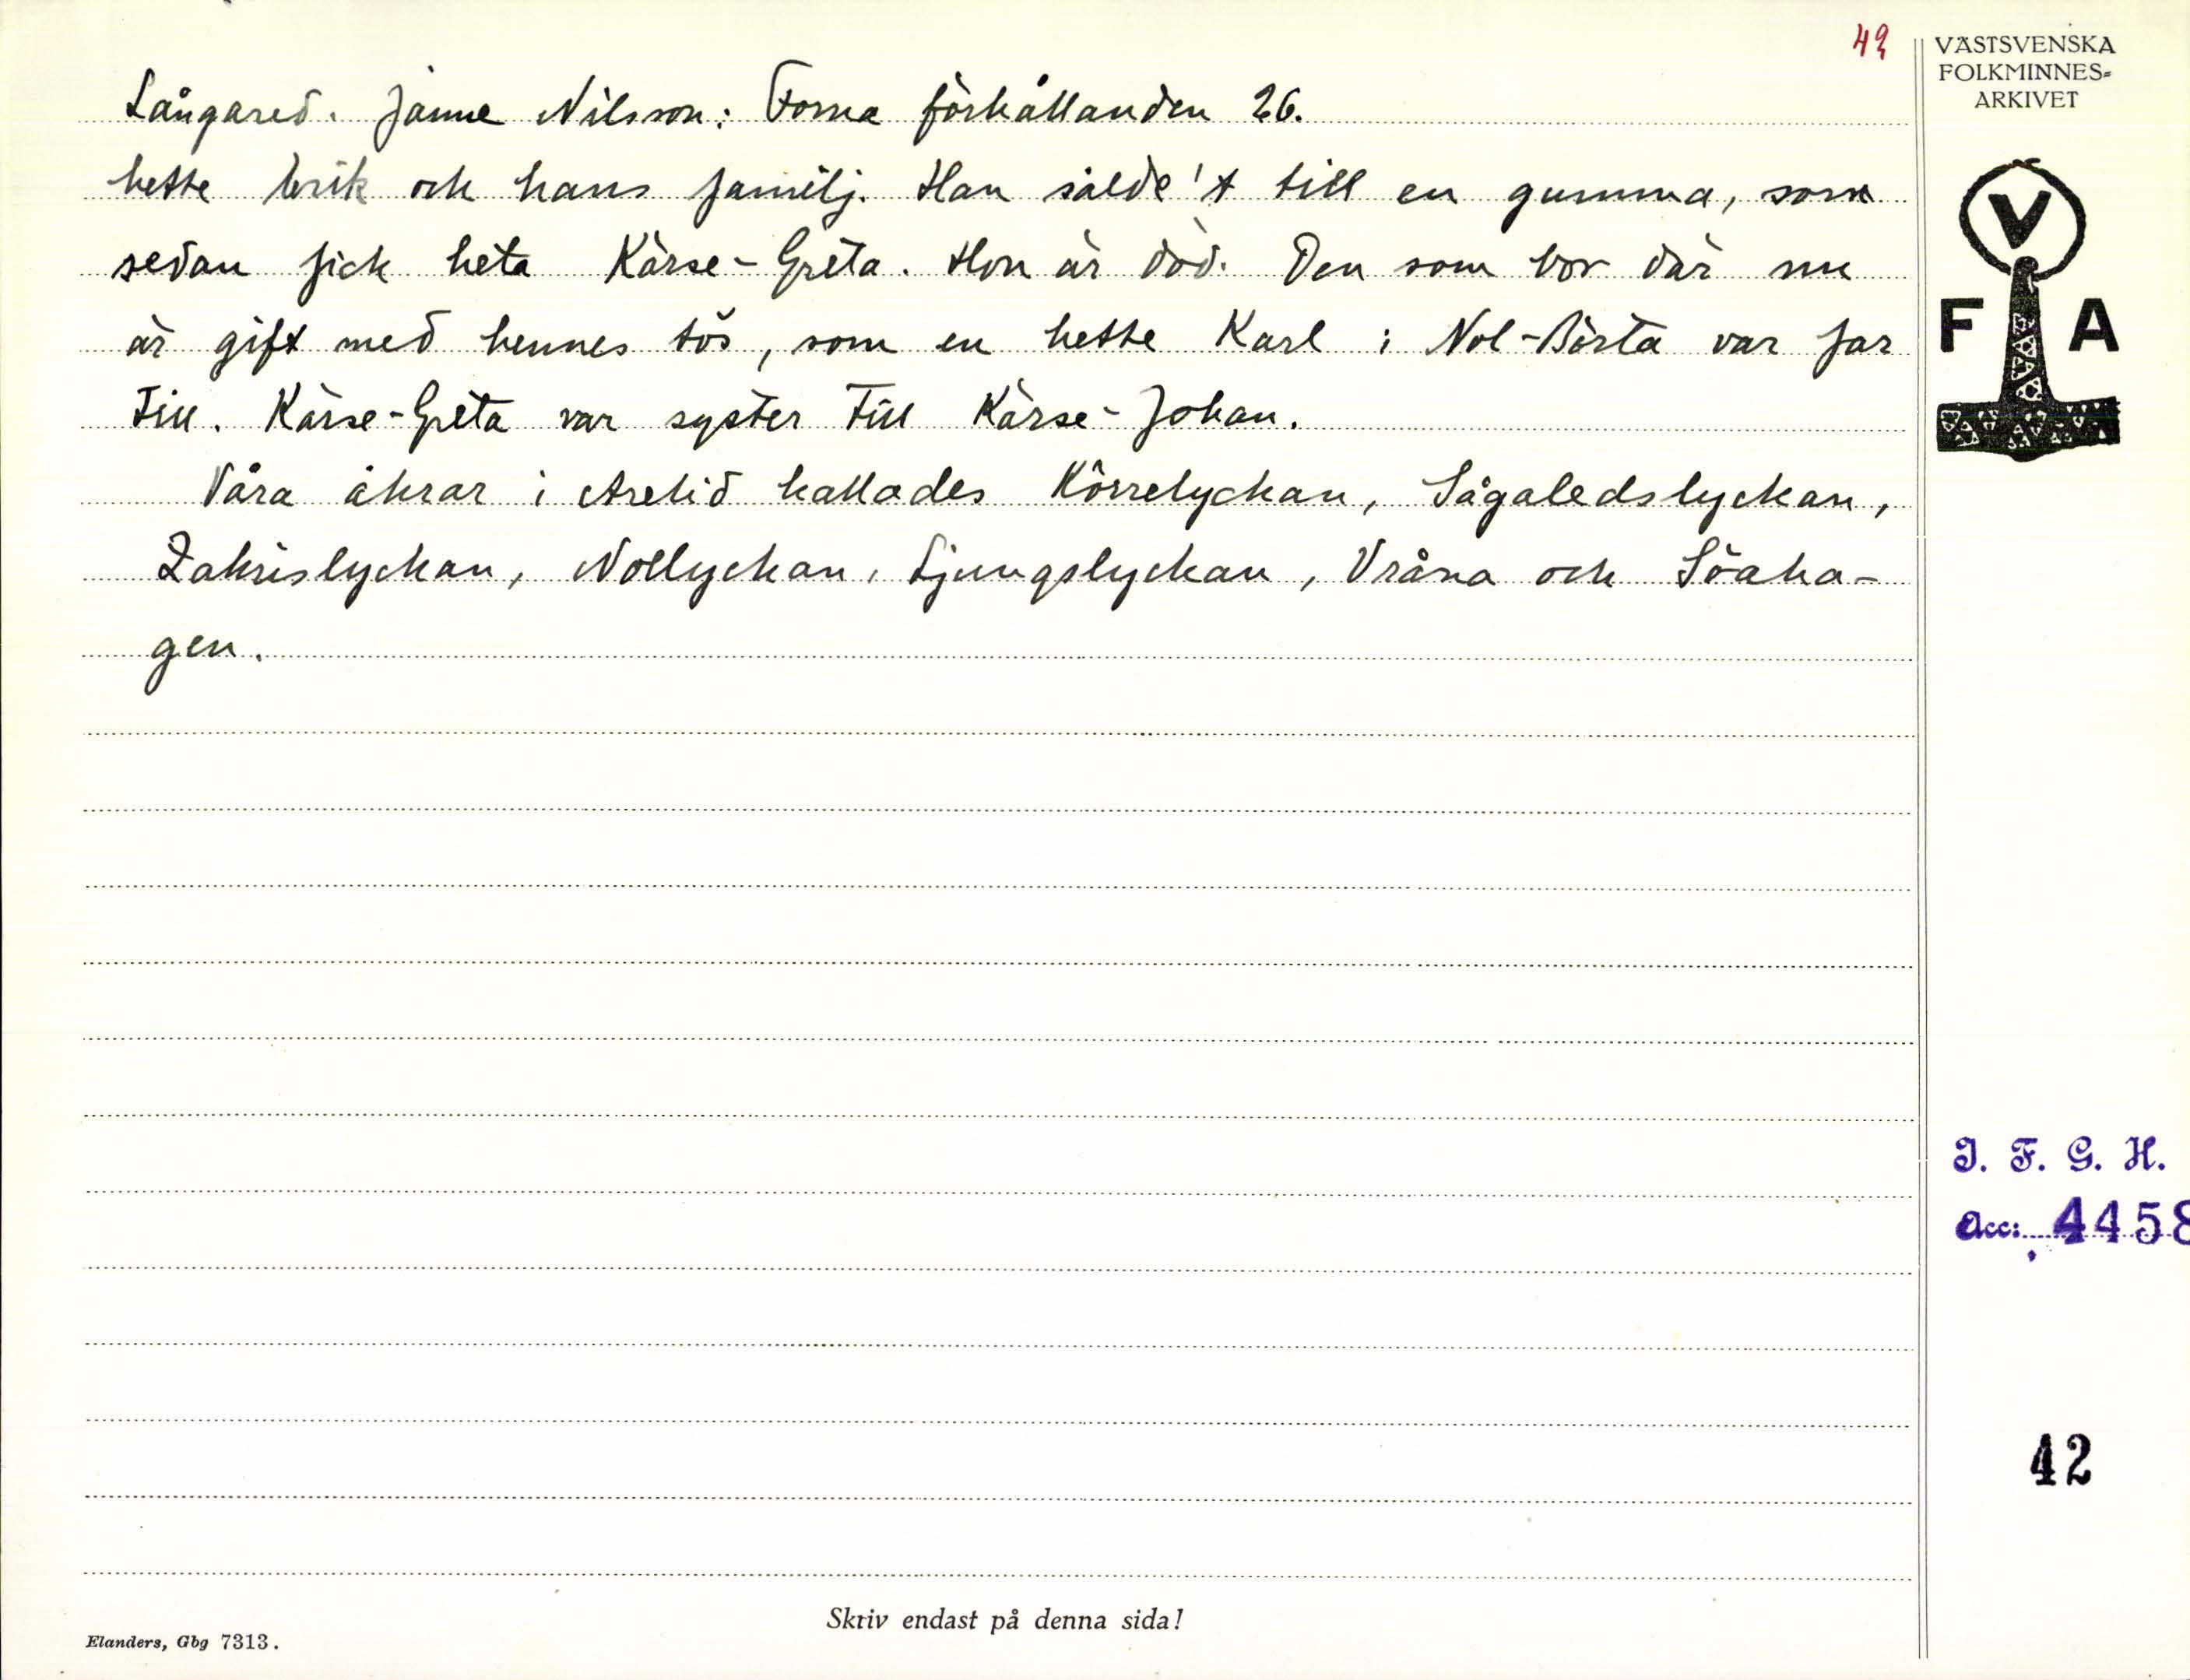 42
Långared. Janne Nilsson: Forna förhållanden 26.
hette Erik och hans familj. Han sålde't till en gumma, som
sedan fick heta Kärse-Greta. Hon är död. Den som bor där nu
är gift med hennes tös, som en hette Karl i Nol-Börta var far
till. Kärse-Greta var syster till Kärse-Johan.
Våra åkrar i Arelid kallades Körrelyckan, Sågaledslyckan,
Zakrislyckan, Nollyckan, Ljungslyckan, Vråna och Söaha-
gen.
VÄSTSVENSKA
FOLKMINNES-
ARKIVET
V
F A
I. F. G. H.
Acc: 4458
42
Skriv endast på denna sida!
Elanders, Gbg 7313.